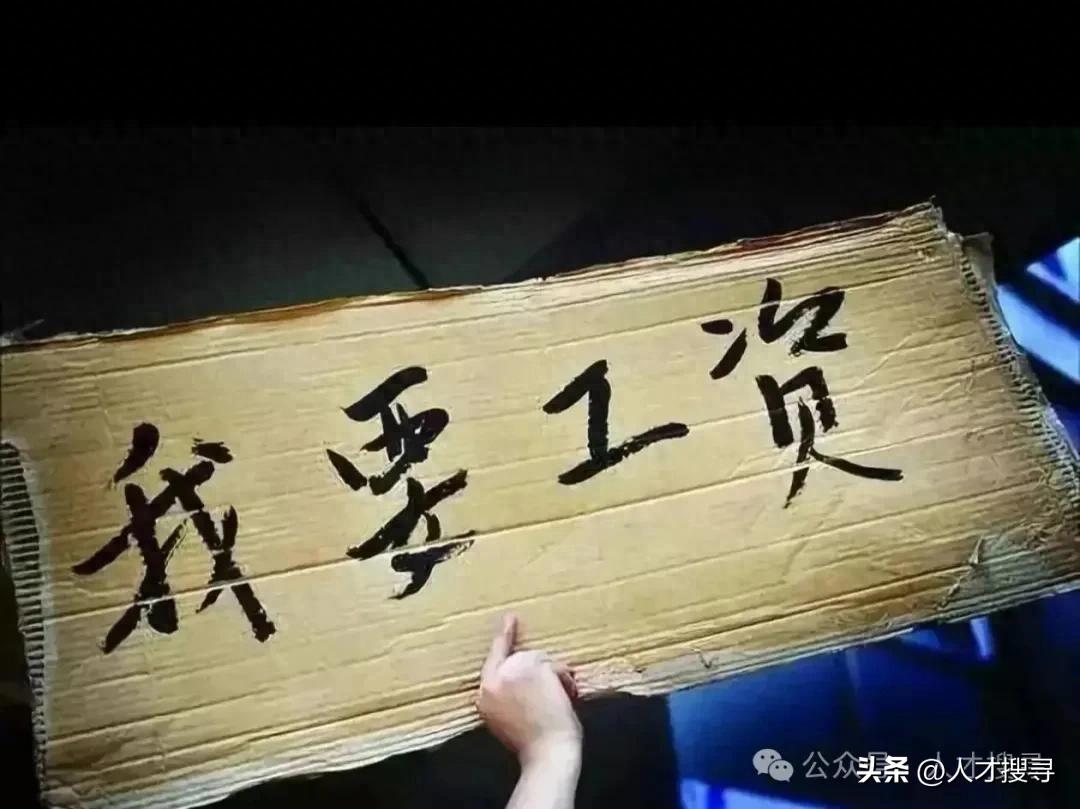 我要工资
公众号·人才搜寻
头条 @人才搜寻